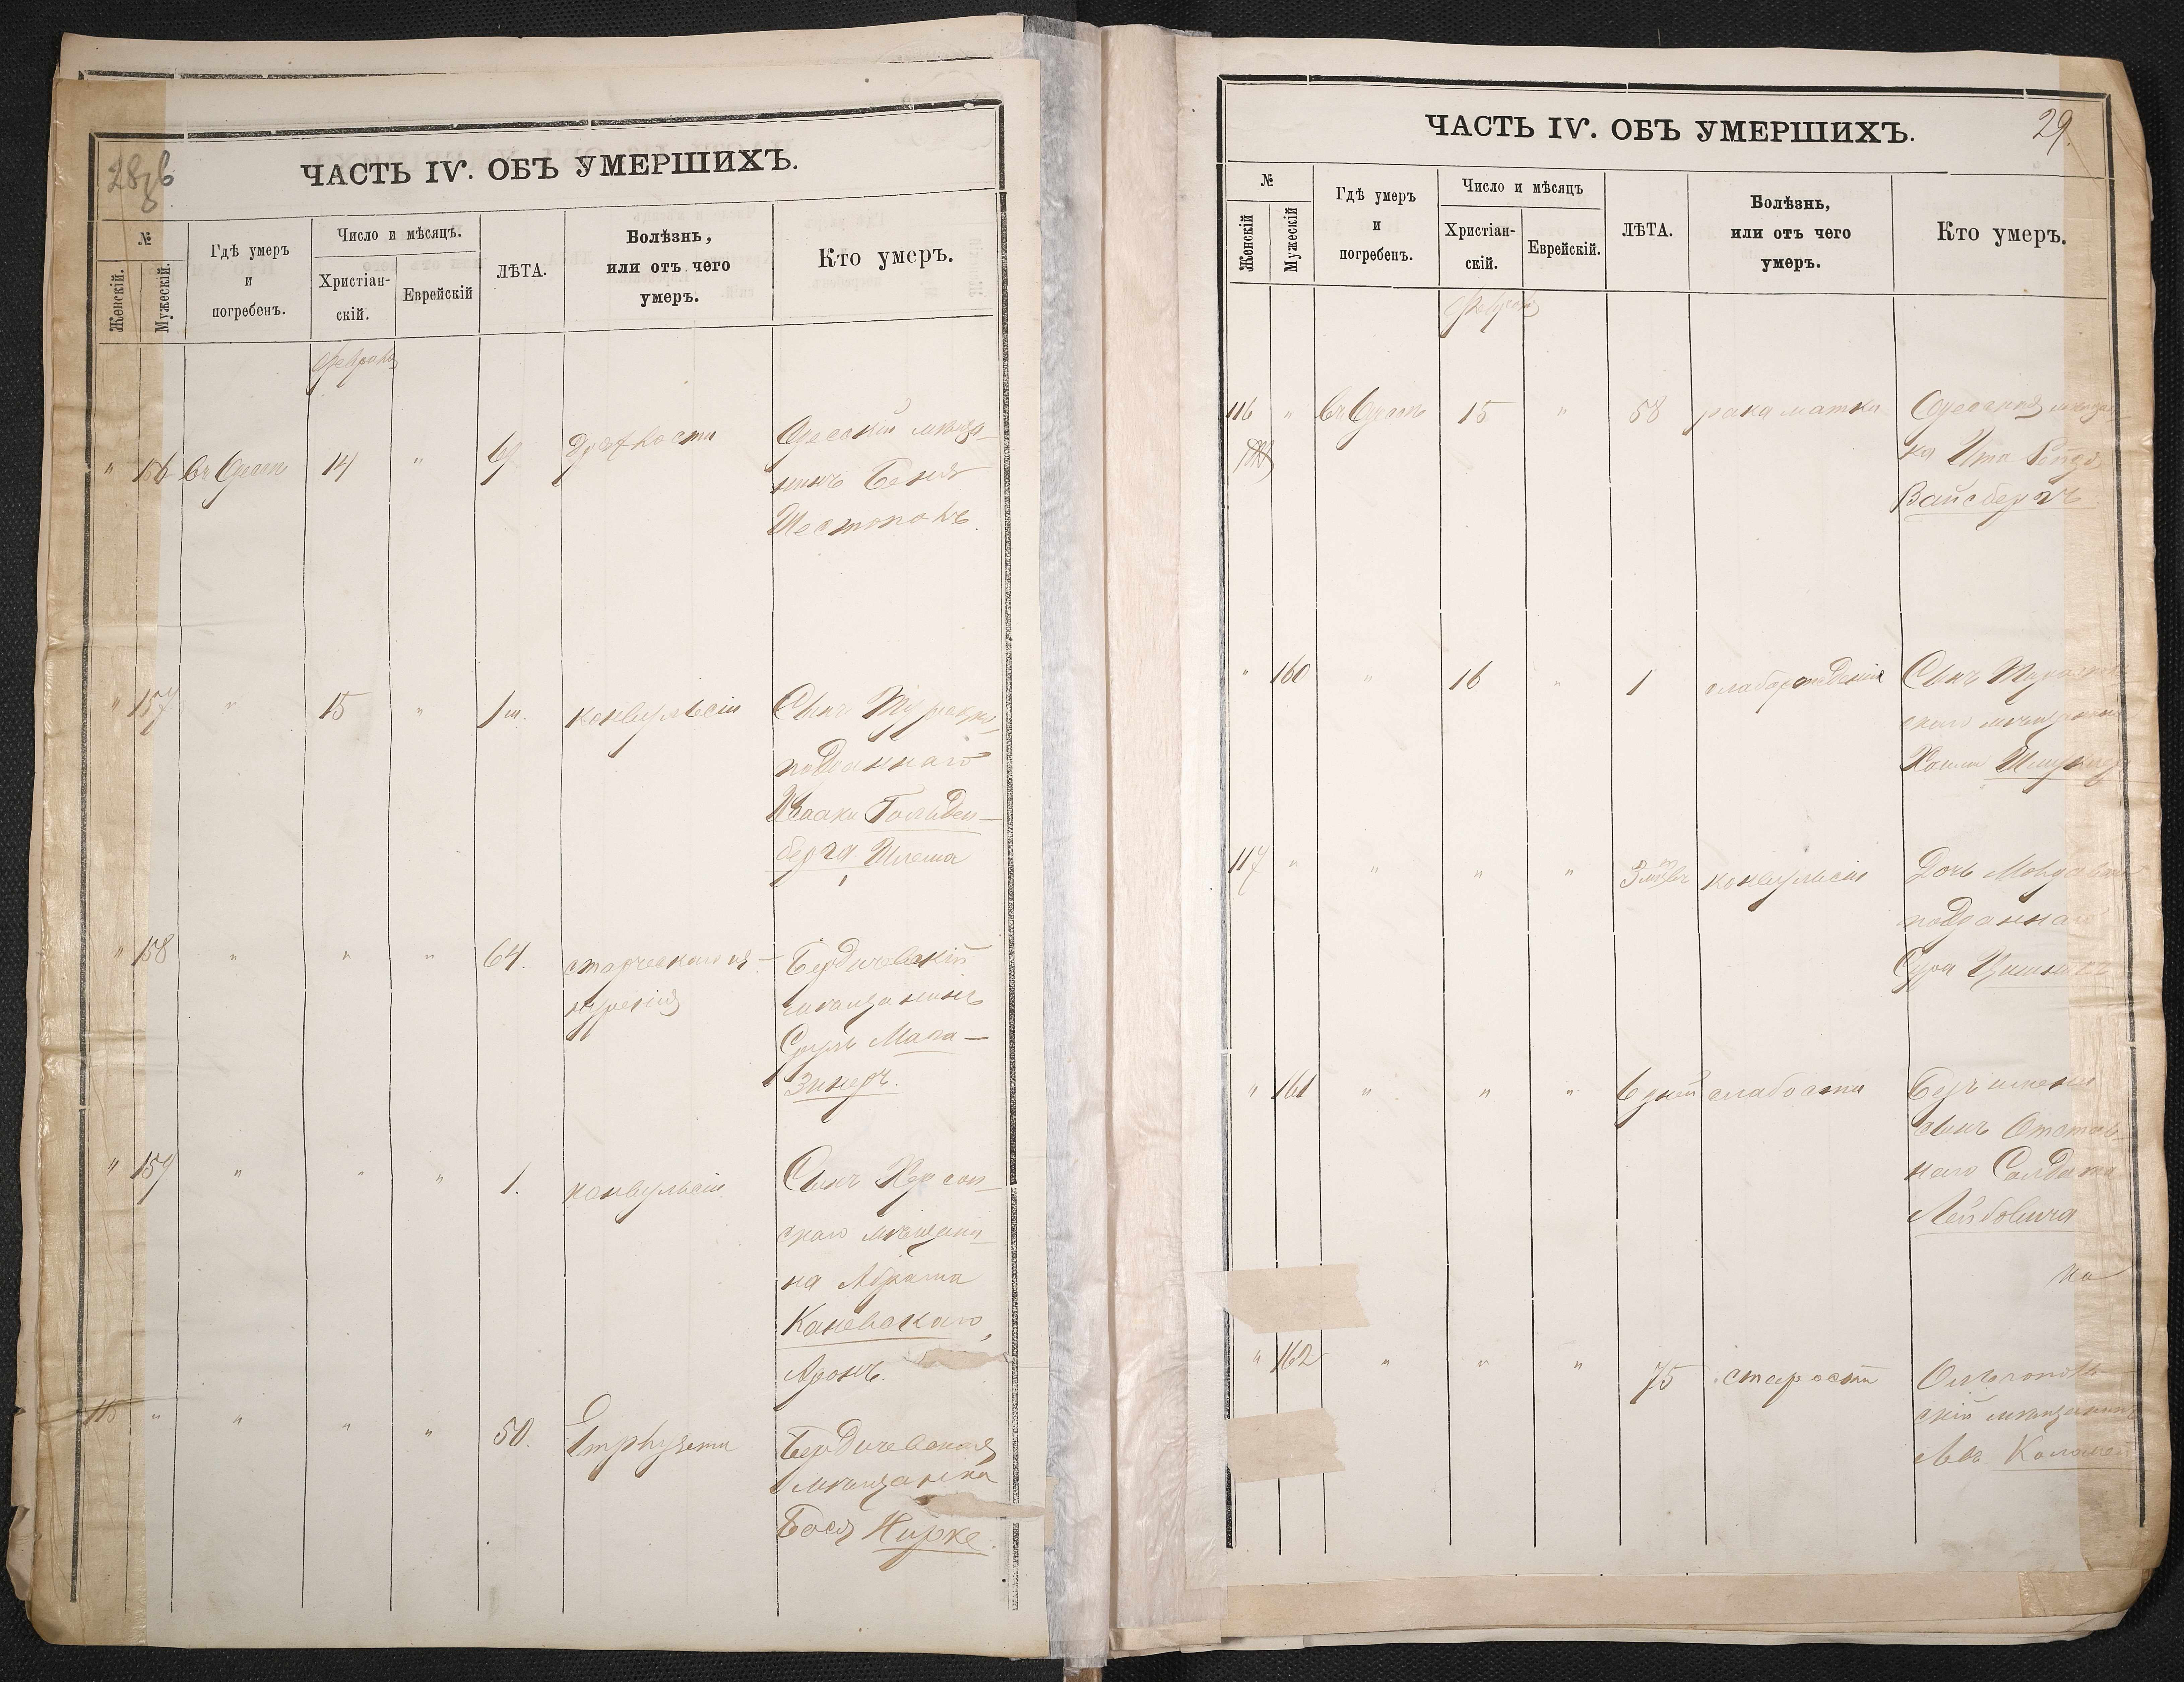 28
ЧАСТЬ IV. ОБЪ УМЕРШИХЪ.
№
Женскій.
Мужескій.
Гдѣ умеръ
и
погребенъ.
Число и мѣсяцъ.
Христіан-
скій.
Еврейскій
ЛѢТА.
Болѣзнь,
или отъ чего
умеръ.
Кто умеръ.
Февраль
" 156 въ Одессѣ 14 " 69 дряхлости Одесскій мѣща-
нинъ Беня
Шестопалъ.
" 157 " 15 " 1 м. конвульсіи Сынъ Турецко-
подданнаго
Исаака Гольден-
берга Шлема
" 158 " " " 64. старческаго из- Бердичевскій
нуренія мѣщанинъ
Сруль Мага-
зинеръ.
" 159 " " " 1. конвульсіи Сынъ Херсон-
скаго мѣщани-
на Абрама
Каневскаго,
Аронъ.
115 " " " " 50. Emphysema Бердичевская
мѣщанка
Бося Кирже.
ЧАСТЬ IV. ОБЪ УМЕРШИХЪ.
29.
№
Женскій
Мужескій
Гдѣ умеръ
и
погребенъ.
Число и мѣсяцъ
Христіан-
скій.
Еврейскій.
ЛѢТА.
Болѣзнь,
или отъ чего
умеръ.
Кто умеръ.
Февраль
116 " въ Одессѣ 15 " 58 рака матки Одесская мѣщан-
ка Ита Рейзя
Вайсбергъ
" 160 " 16 " 1 слаборожденія Сынъ
скаго мѣщанина
117 " " " " 3 мѣс. конвульсіи Дочь Молдавско
подданнаго
Сура
" 161 " " " 6 дней слабости Безъ имени
сынъ Отстав-
наго Солдата
Лейбовича
" 162 " " " 75 старости Ольгополь-
скій мѣщанинъ
Лейб Коломе